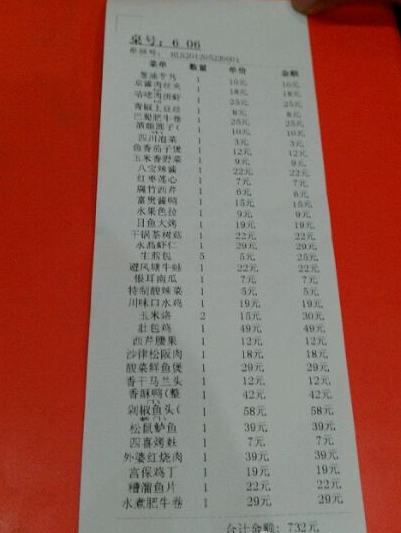 桌号: 6 06
菜单 数量 单价 金额
1 10元 10元
京酱肉丝夹 1 18元 18元
1 25元 25元
青椒土豆丝 1 8元 8元
巴蜀肥牛卷 1 25元 25元
1 10元 10元
四川泡菜 1 3元 3元
鱼香茄子煲 1 12元 12元
玉米香野菜 1 9元 9元
八宝辣酱 1 22元 22元
红枣莲心 1 7元 7元
腐竹西芹 1 6元
富贵酱鸭 1 15元 15元
水果色拉 1 9元 9元
目鱼大烤 1 19元 19元
干锅茶树菇 1 22元 22元
水晶虾仁 1 29元 29元
生煎包 5 5元 25元
避风塘牛蛙 1 22元 22元
银耳南瓜 1 7元 7元
特制靓辣菜 1 5元 5元
川味口水鸡 1 19元 19元
玉米烙 2 15元 30元
肚包鸡 1 49元 49元
西芹腰果 1 12元 12元
沙律松阪肉 1 18元 18元
靓菜鲜鱼煲 1 29元 29元
香干马兰头 1 12元 12元
香酥鸭(整 1 42元 42元
剁椒鱼头( 1 58元 58元
松鼠鲈鱼 1 39元 39元
四喜烤麸 1 7元 7元
外婆红烧肉 1 39元 39元
宫保鸡丁 1 19元 19元
糟溜鱼片 1 22元 22元
水煮肥牛卷 1 29元 29元
合计金额: 732元